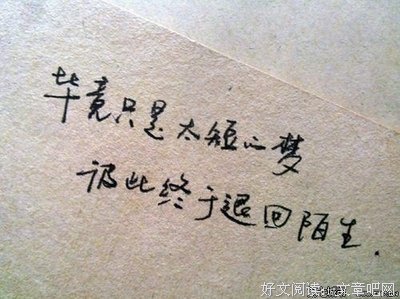 毕竟只是太短的梦
彼此终于退回陌生.
好文阅读:文章吧网